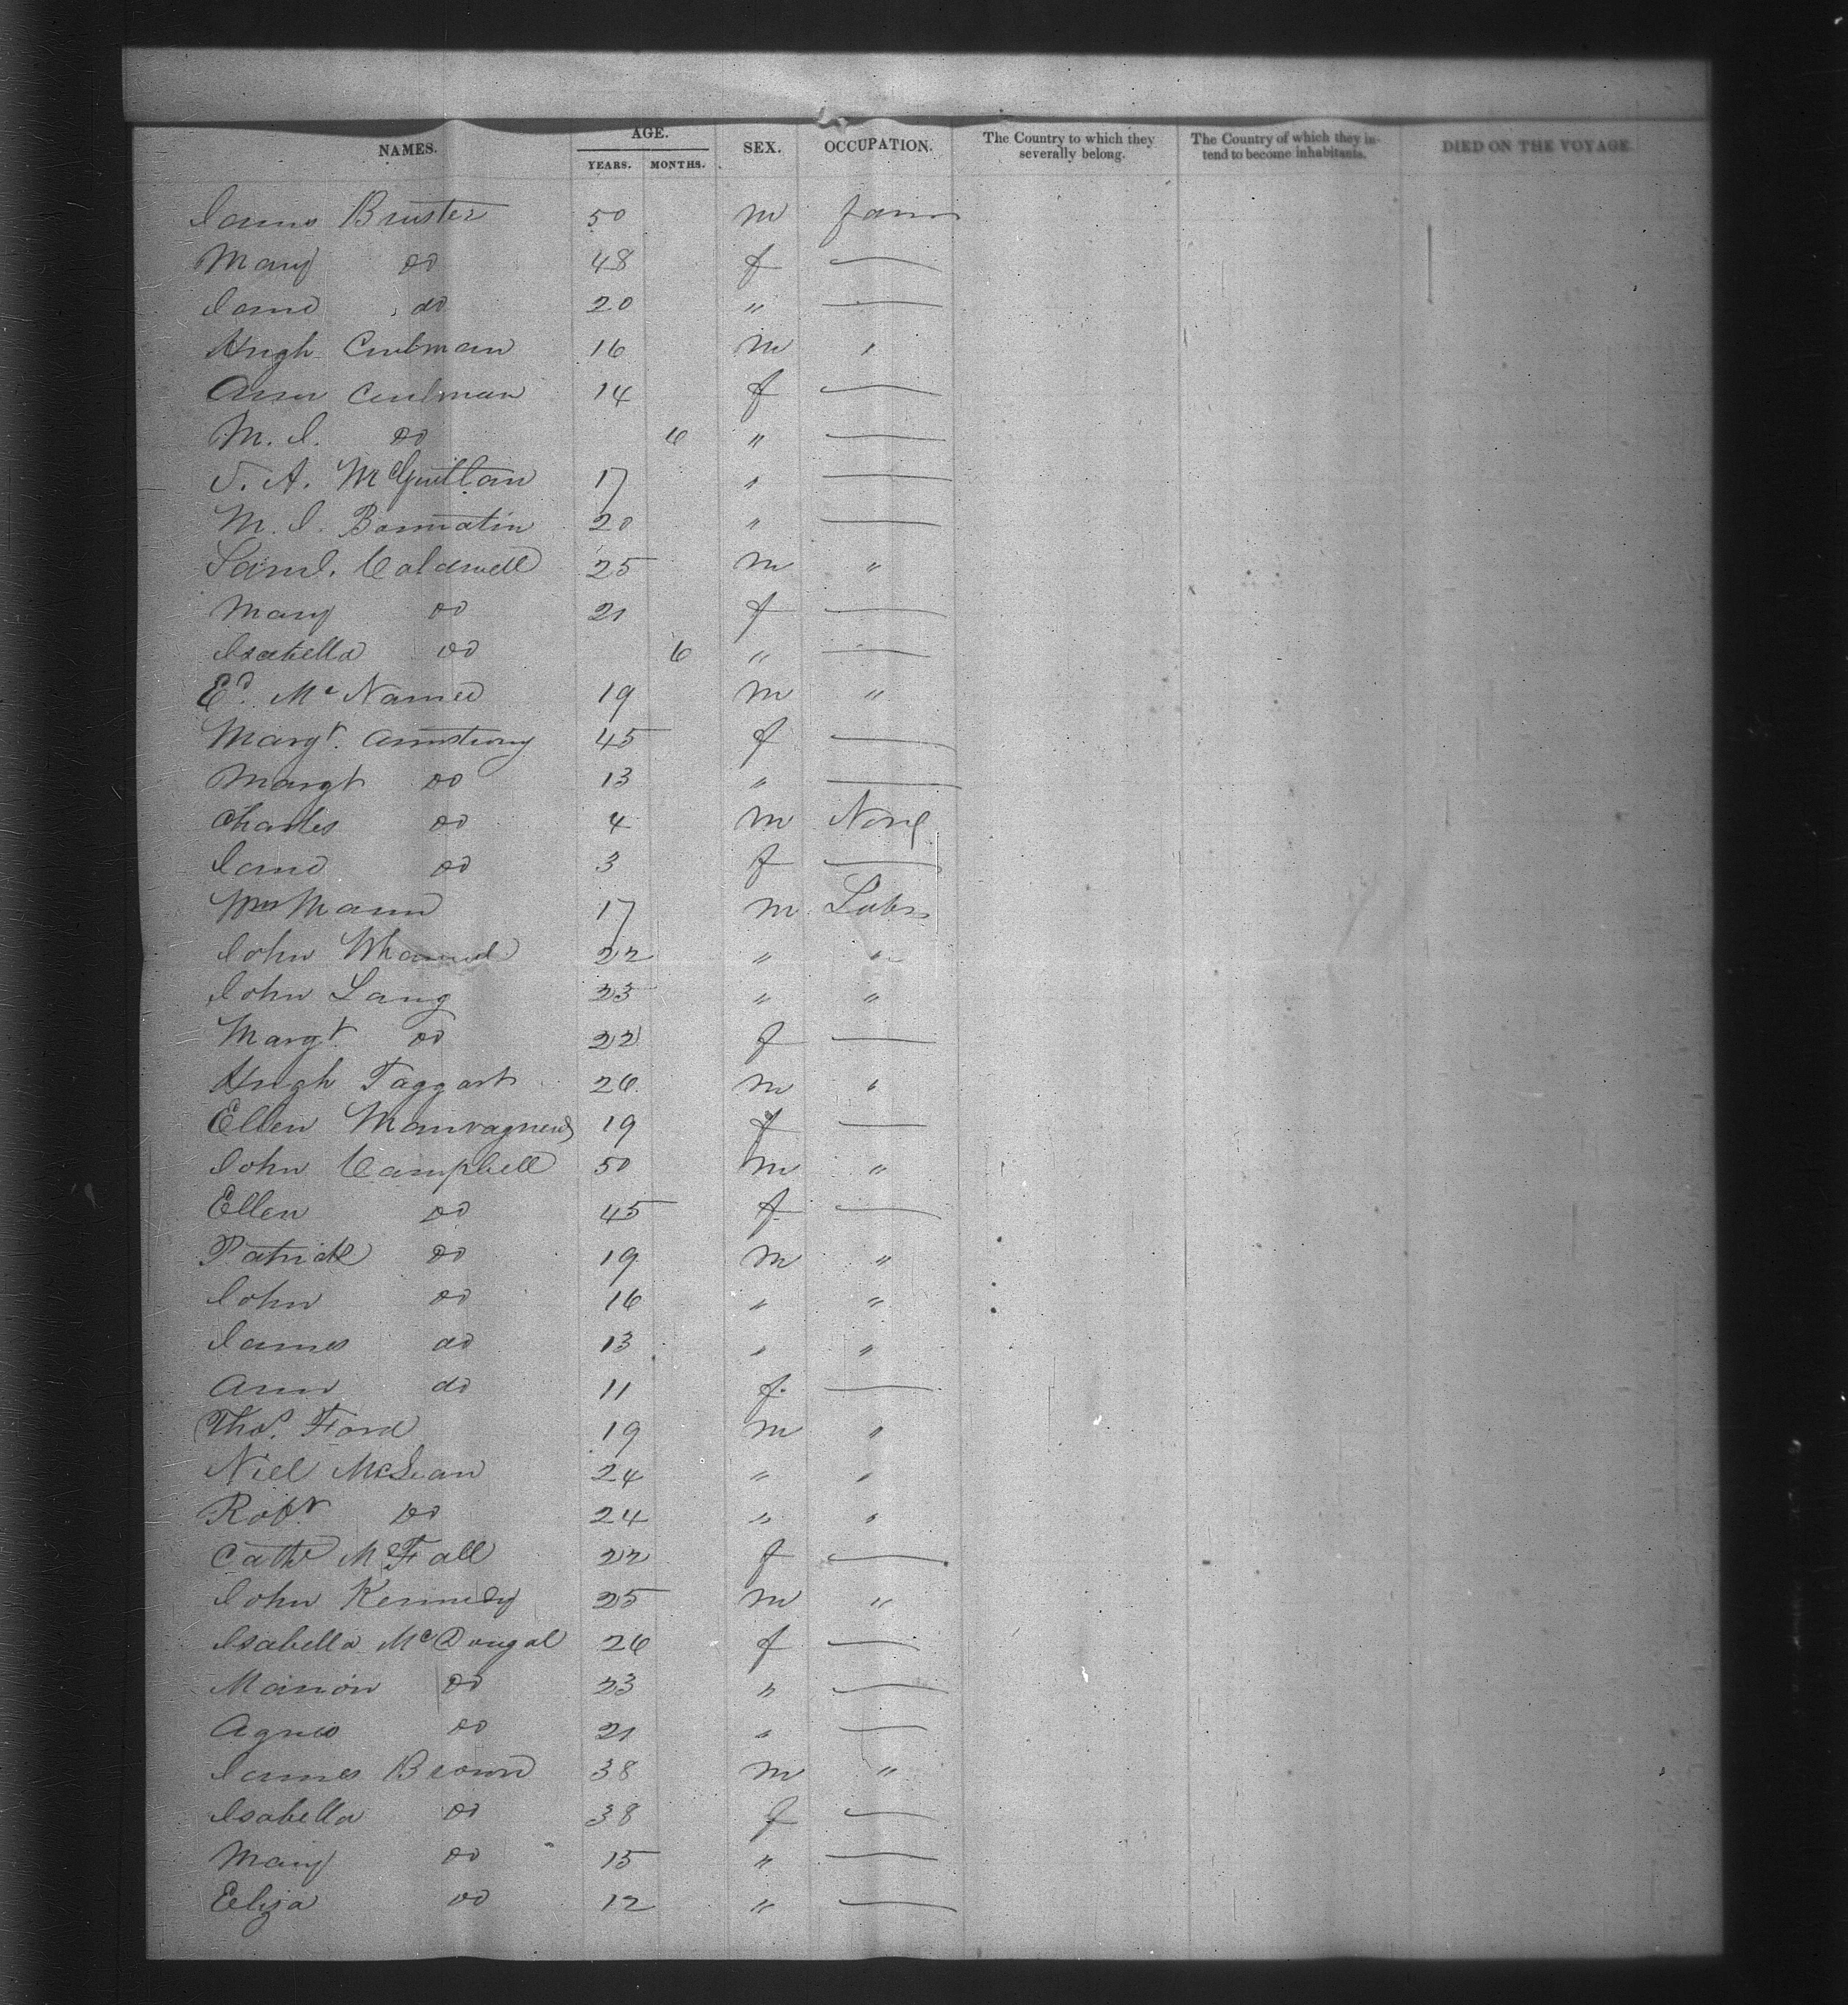 NAMES. AGE. YEARS. MONTHS. SEX. OCCUPATION. The Country to which they severally belong. The Country of which they intend to become inhabitants. DIED ON THE VOYAGE.
James Bruster 50 m farm
Mary do 48 f —
Jane do 20 " —
Hugh 16 m "
Ann 14 f —
M. J. do 6 " —
J. A. McQuillan 17 " —
M. J. 20 " —
Saml. Caldwell 25 m "
Mary do 21 f —
Isabella do 6 " —
Ed. McNamee 19 m "
Margt. Armstrong 45 f —
Margt do 13 " —
Charles do 4 m None
Jane do 3 f —
Wm Mann 17 m Labr
John 22 " "
John Lang 23 " "
Margt. do 22 f —
Hugh Taggart 26 m "
Ellen 19 f —
John Campbell 50 m "
Ellen do 45 f —
Patrick do 19 m "
John do 16 " "
James do 13 " "
Ann do 11 f —
Thos. Ford 19 m "
Niel McLean 24 " "
Robt. do 24 " "
Cathe McFall 22 f —
John Kennedy 25 m "
Isabella McDougal 26 f —
Marion do 23 " —
Agnes do 21 " —
James Brown 38 m "
Isabella do 38 f —
Mary do 15 " —
Eliza do 12 " —